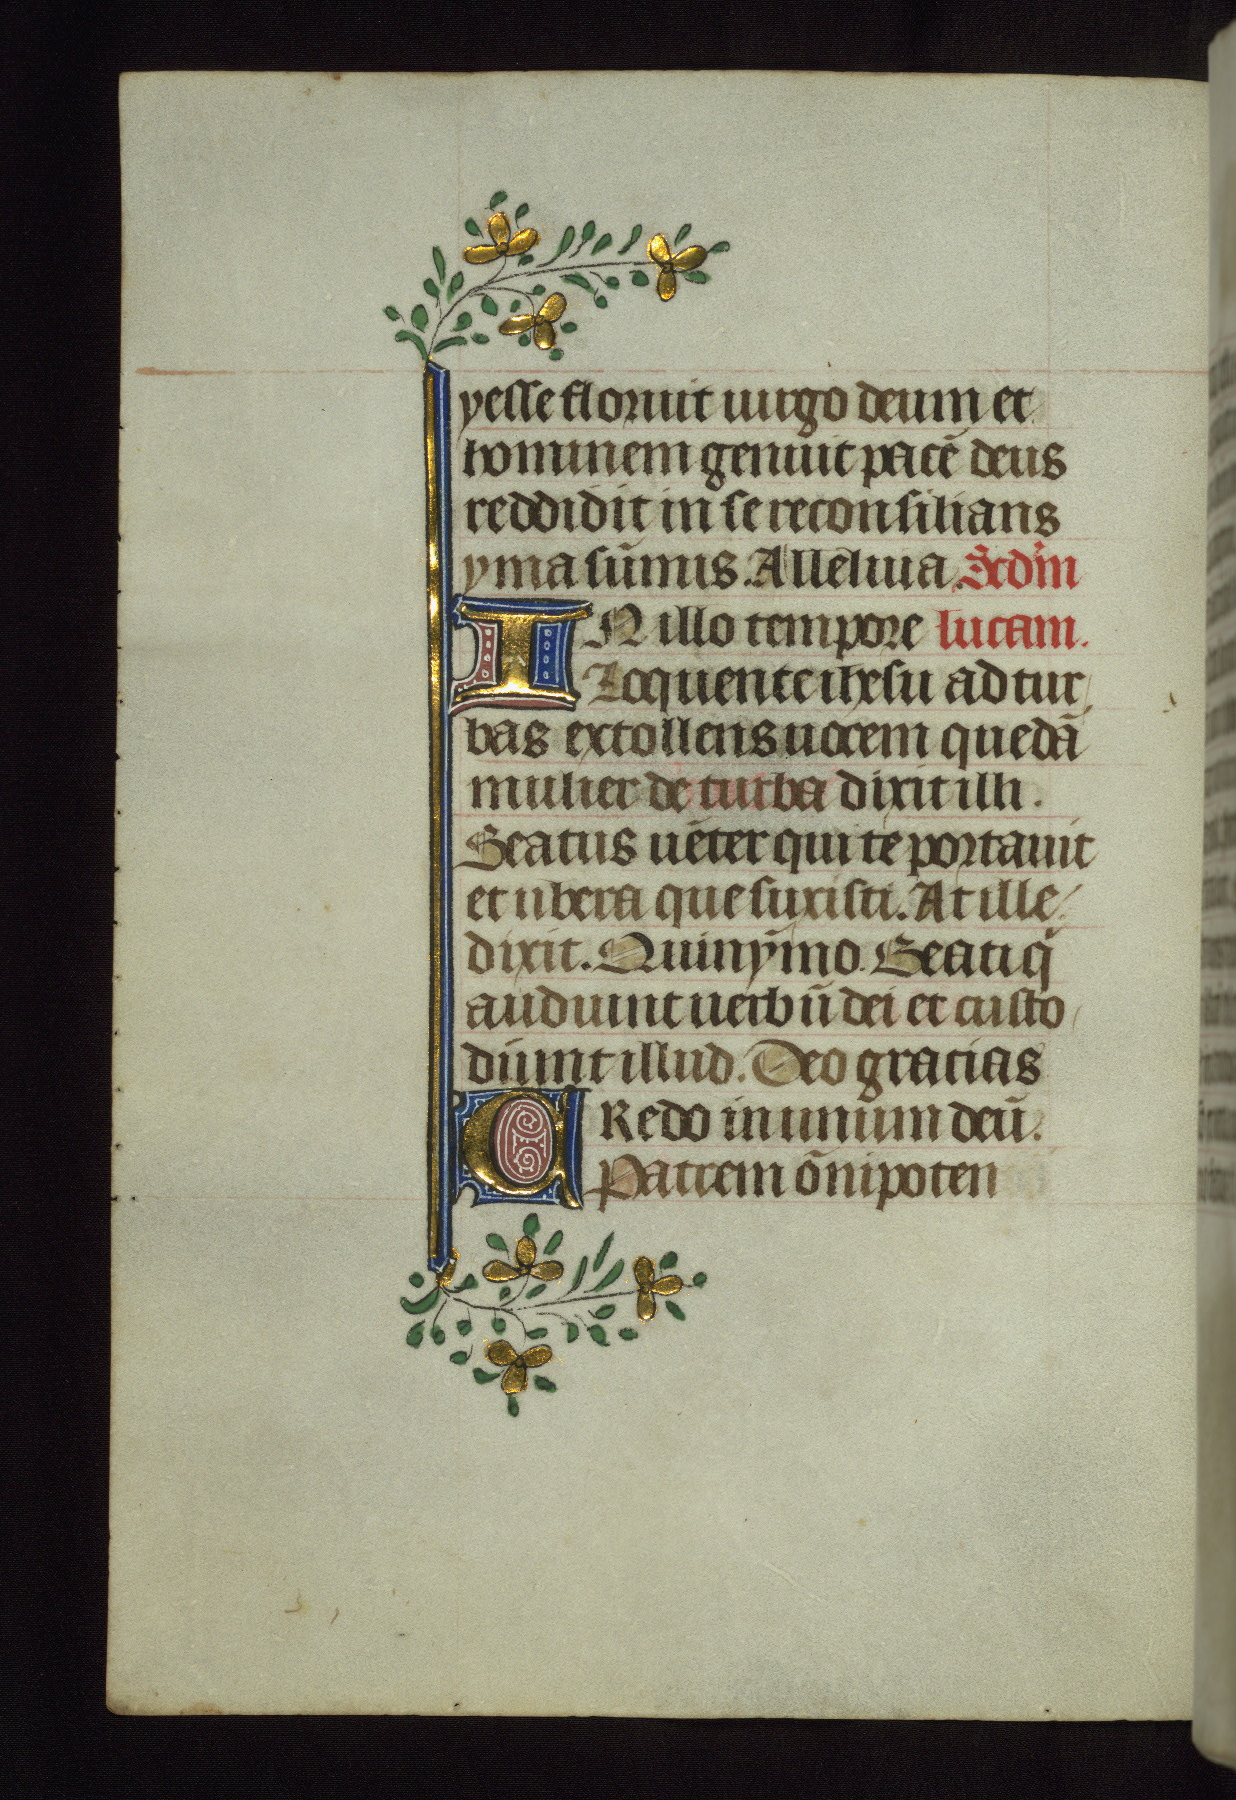 yesse floruit uirgo deum et
hominem genuit pacē deus
reddidit in se reconsilians
yma sūmis. Alleluia. Scd'm
IN illo tempore lucam.
Loquente ihesu ad tur
bas extollens uocem quedā
mulier de turba dixit illi.
Beatus uēter qui te portauit
et ubera que suxisti. At ille
dixit. Quinymo. Beati q̄
audiunt uerbū dei et custo
diunt illud. Deo gracias
CRedo in unum deū.
Patrem ōnipoten